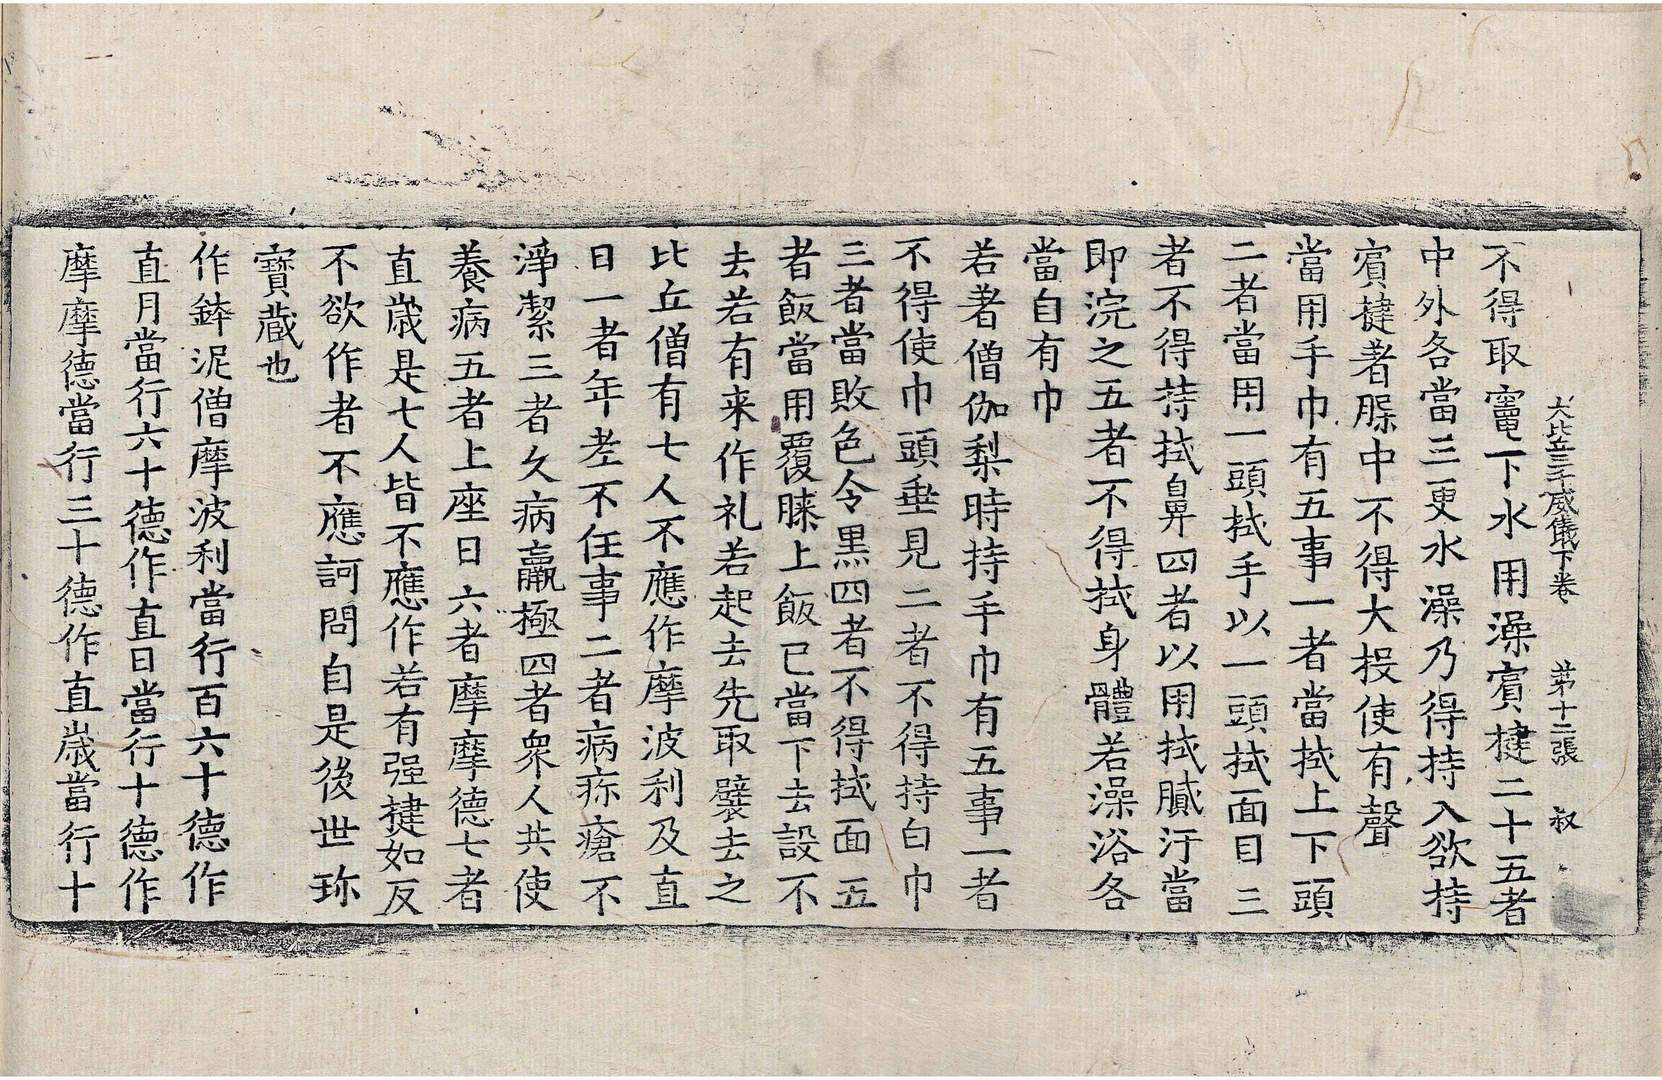 大比丘三千威儀下卷 第十二張 叔
不得取竈下水用澡賔揵二十五者
中外各當三更水澡乃得持入欲持
賔揵著屧中不得大投使有聲
當用手巾有五事一者當拭上下頭
二者當用一頭拭手以一頭拭面目三
者不得持拭鼻四者以用拭膩汙當
即浣之五者不得拭身體若澡浴各
當自有巾
若著僧伽梨時持手巾有五事一者
不得使巾頭垂見二者不得持白巾
三者當敗色令黒四者不得拭面五
者飯當用覆膝上飯已當下去設不
去若有来作礼若起去先取襞去之
比丘僧有七人不應作摩波利及直
日一者年老不任事二者病疥瘡不
淨潔三者久病羸極四者衆人共使
養病五者上座日六者摩摩德七者
直歲是七人皆不應作若有强揵如反
不欲作者不應訶問自是後世珎
寶藏也
作鉢泥僧摩波利當行百六十德作
直月當行六十德作直日當行十德作
摩摩德當行三十德作直歲當行十